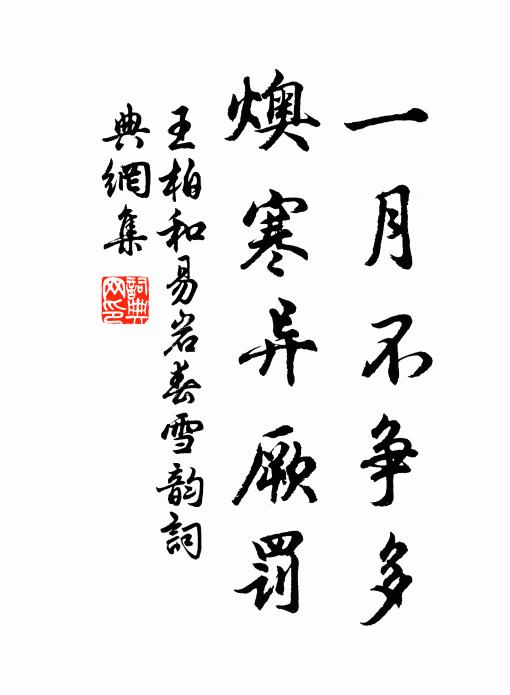 一月不争多
燠寒异厥罚
王柏和易岩春雪韵詞
典網集
詞典
网印